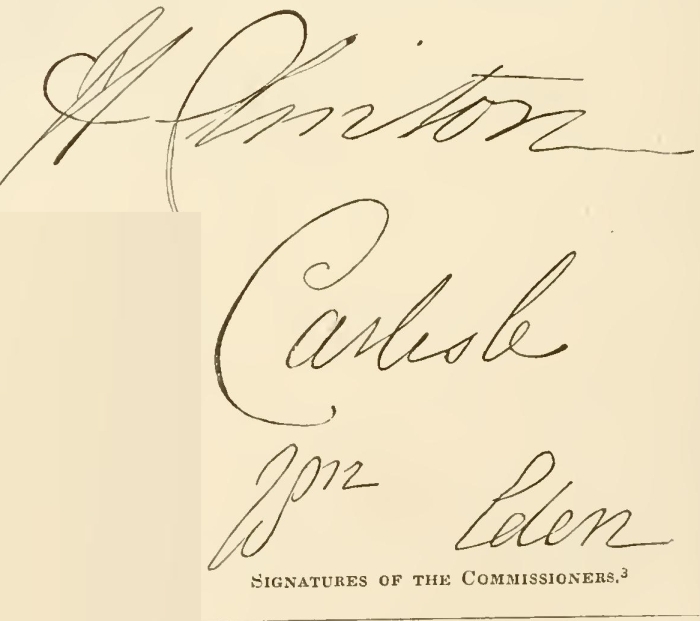 H Clinton
Carlisle
Wm Eden
SIGNATURES OF THE COMMISSIONERS.3